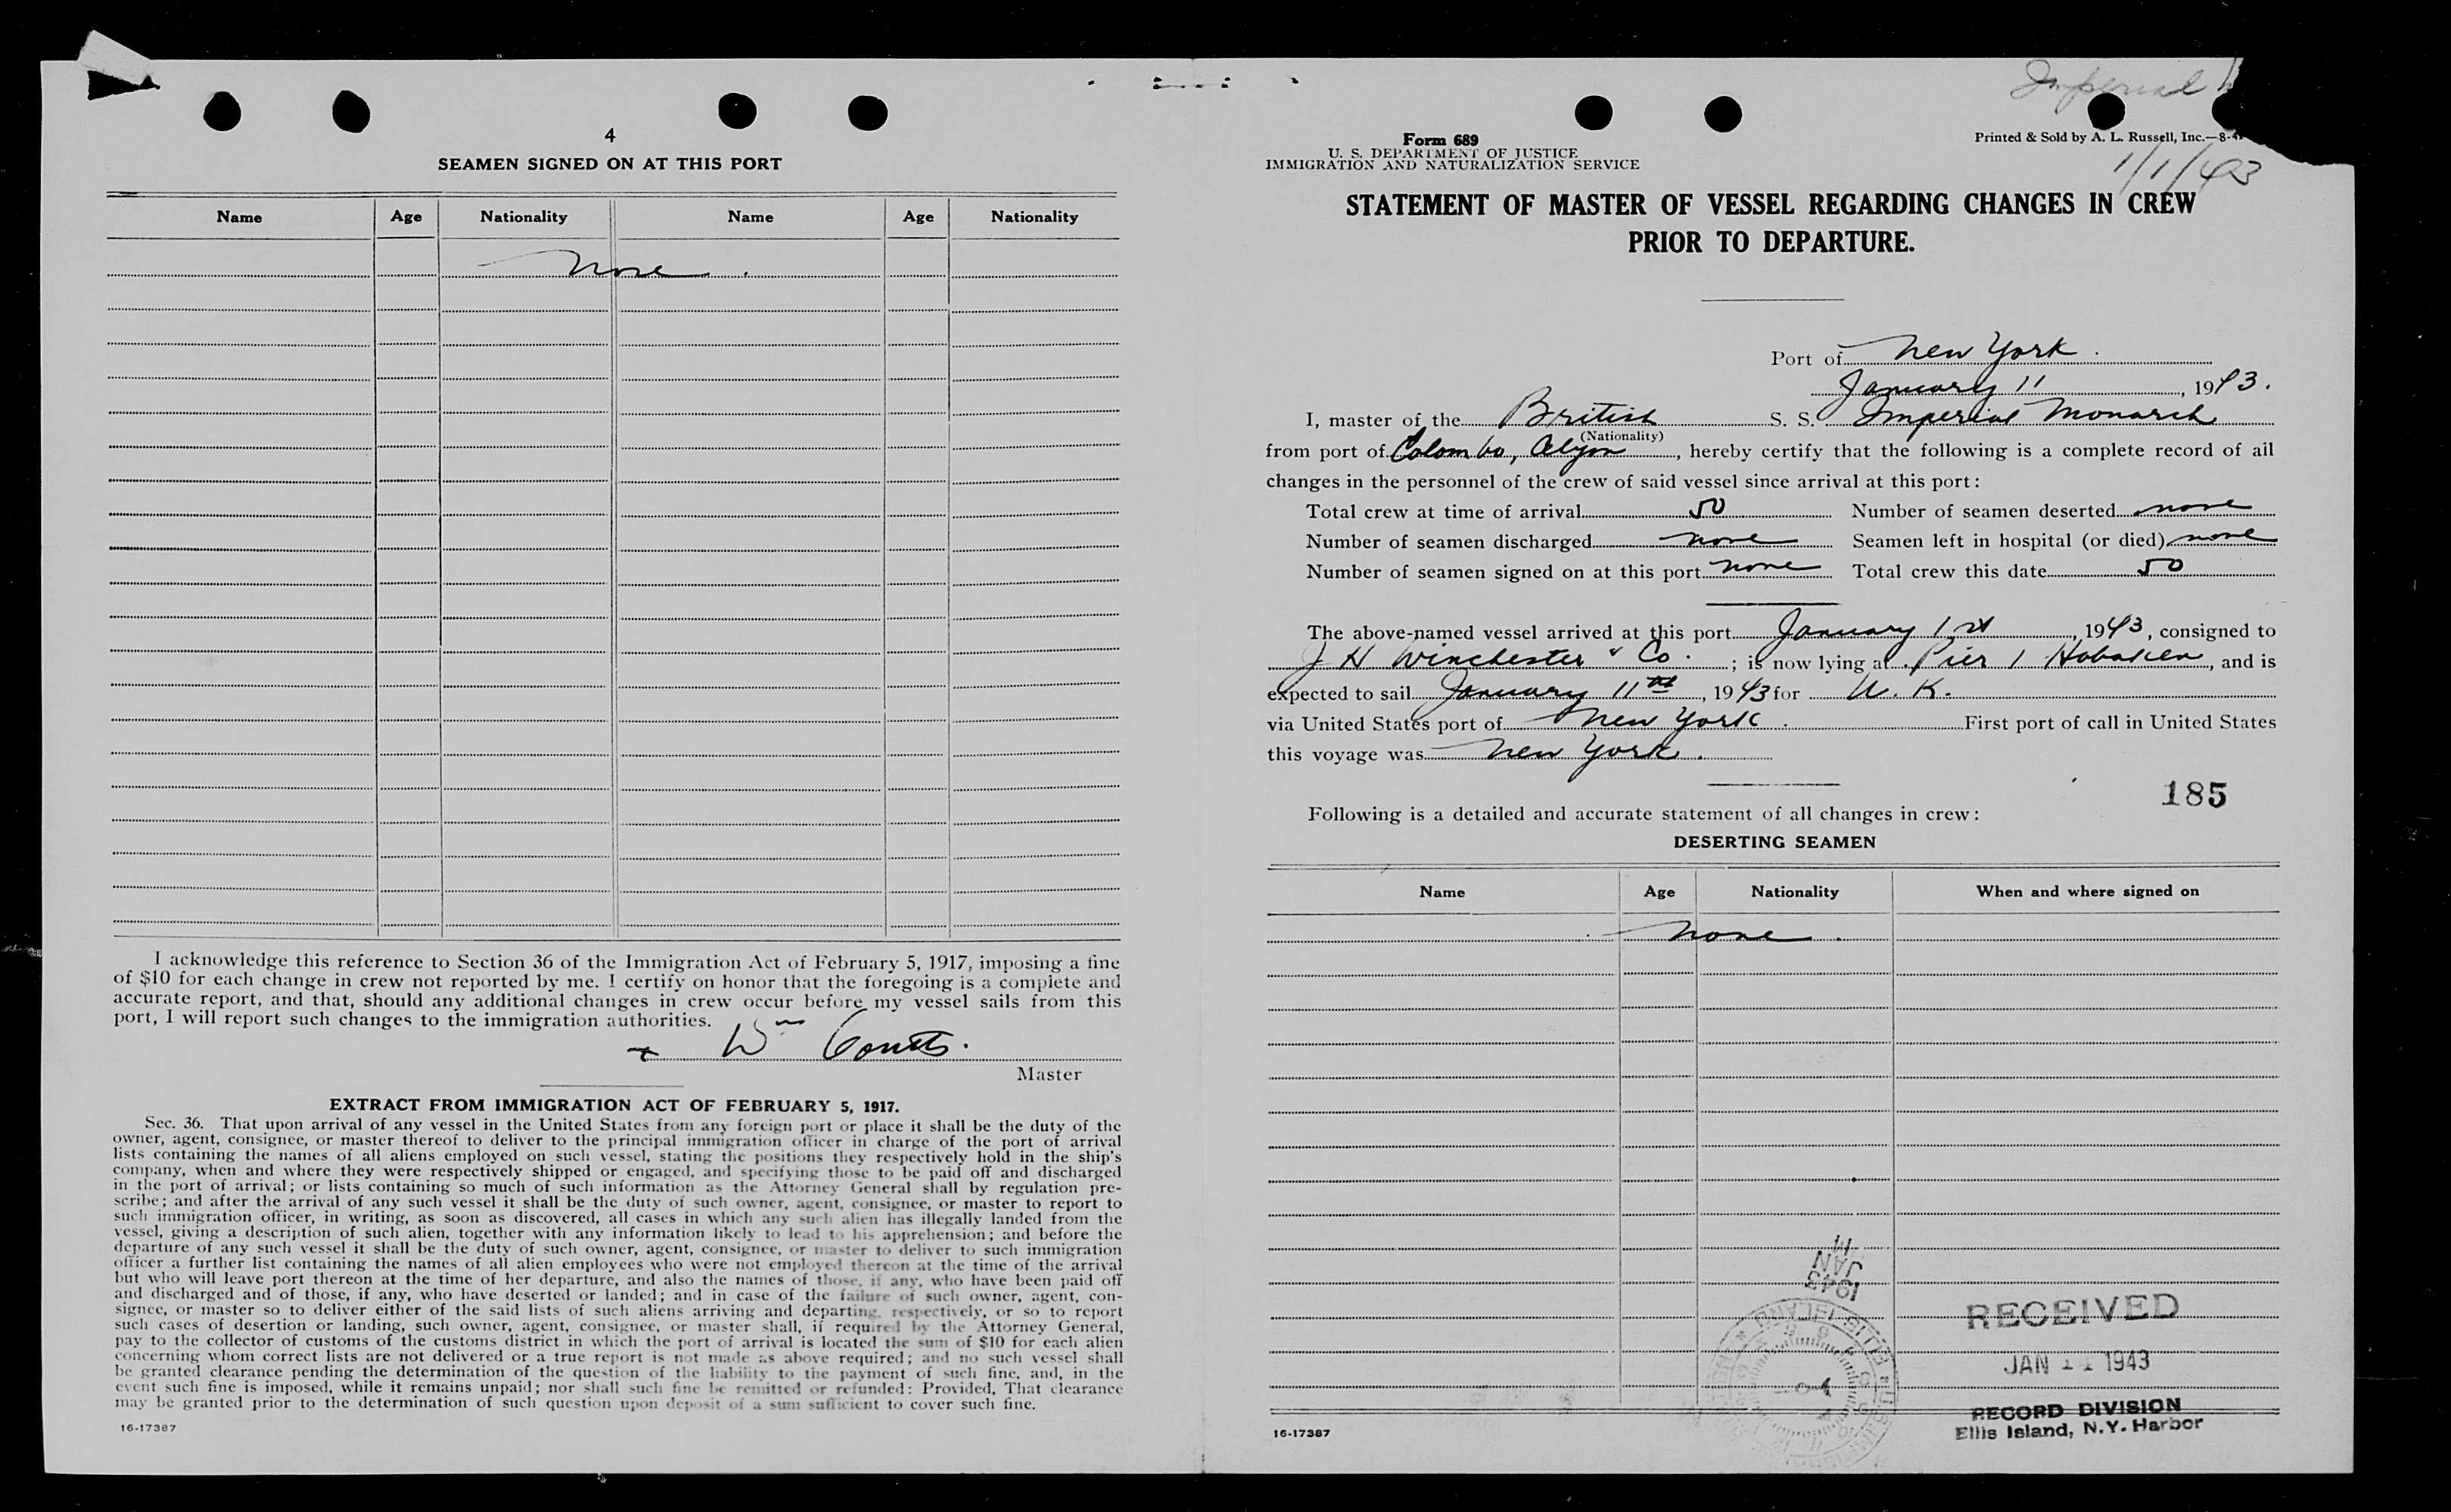 4
SEAMEN SIGNED ON AT THIS PORT
Name Age Nationality Name Age Nationality
None .
I acknowledge this reference to Section 36 of the Immigration Act of February 5, 1917, imposing a fine
of $10 for each change in crew not reported by me. I certify on honor that the foregoing is a complete and
accurate report, and that, should any additional changes in crew occur before my vessel sails from this
port, I will report such changes to the immigration authorities.
Wm
Master
EXTRACT FROM IMMIGRATION ACT OF FEBRUARY 5, 1917.
Sec. 36. That upon arrival of any vessel in the United States from any foreign port or place it shall be the duty of the
owner, agent, consignee, or master thereof to deliver to the principal immigration officer in charge of the port of arrival
lists containing the names of all aliens employed on such vessel, stating the positions they respectively hold in the ship's
company, when and where they were respectively shipped or engaged, and specifying those to be paid off and discharged
in the port of arrival; or lists containing so much of such information as the Attorney General shall by regulation pre-
scribe; and after the arrival of any such vessel it shall be the duty of such owner, agent, consignee, or master to report to
such immigration officer, in writing, as soon as discovered, all cases in which any such alien has illegally landed from the
vessel, giving a description of such alien, together with any information likely to lead to his apprehension; and before the
departure of any such vessel it shall be the duty of such owner, agent, consignee, or master to deliver to such immigration
officer a further list containing the names of all alien employees who were not employed thereon at the time of the arrival
but who will leave port thereon at the time of her departure, and also the names of those, if any, who have been paid off
and discharged and of those, if any, who have deserted or landed; and in case of the failure of such owner, agent, con-
signee, or master so to deliver either of the said lists of such aliens arriving and departing, respectively, or so to report
such cases of desertion or landing, such owner, agent, consignee, or master shall, if required by the Attorney General,
pay to the collector of customs of the customs district in which the port of arrival is located the sum of $10 for each alien
concerning whom correct lists are not delivered or a true report is not made as above required; and no such vessel shall
be granted clearance pending the determination of the question of the liability to the payment of such fine, and, in the
event such fine is imposed, while it remains unpaid; nor shall such fine be remitted or refunded: Provided, That clearance
may be granted prior to the determination of such question upon deposit of a sum sufficient to cover such fine.
16-17387
Imperial
Form 689
U. S. DEPARTMENT OF JUSTICE
IMMIGRATION AND NATURALIZATION SERVICE
Printed & Sold by A. L. Russell, Inc.—8-4
1/1/43
STATEMENT OF MASTER OF VESSEL REGARDING CHANGES IN CREW
PRIOR TO DEPARTURE.
Port of New York .
January 11, 1943.
I, master of the British S. S. Imperial Monarch
(Nationality)
from port of Colombo, Celyon, hereby certify that the following is a complete record of all
changes in the personnel of the crew of said vessel since arrival at this port:
Total crew at time of arrival 50 Number of seamen deserted none
Number of seamen discharged none Seamen left in hospital (or died) none
Number of seamen signed on at this port none Total crew this date 50
The above-named vessel arrived at this port January 1st, 1943, consigned to
J H Winchester & Co. ; is now lying at Pier 1 Hoboken, and is
expected to sail January 11th, 1943 for U. K.
via United States port of New York . First port of call in United States
this voyage was New York .
185
Following is a detailed and accurate statement of all changes in crew:
DESERTING SEAMEN
Name Age Nationality When and where signed on
None .
JAN
1943
ELLIS ISLAND
RECEIVED
JAN 11 1943
RECORD DIVISION
Ellis Island, N.Y. Harbor
16-17387